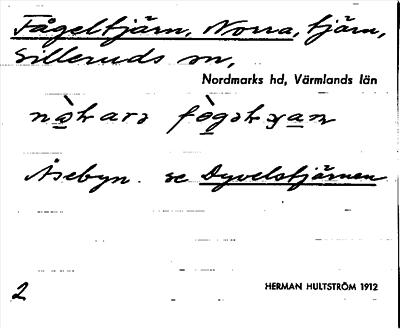 Fågeltjärn, Norra, tjärn,
Silleruds sn,
Nordmarks hd, Värmlands län
Åsebyn. se Dyvelstjärnen
2
HERMAN HULTSTRÖM 1912